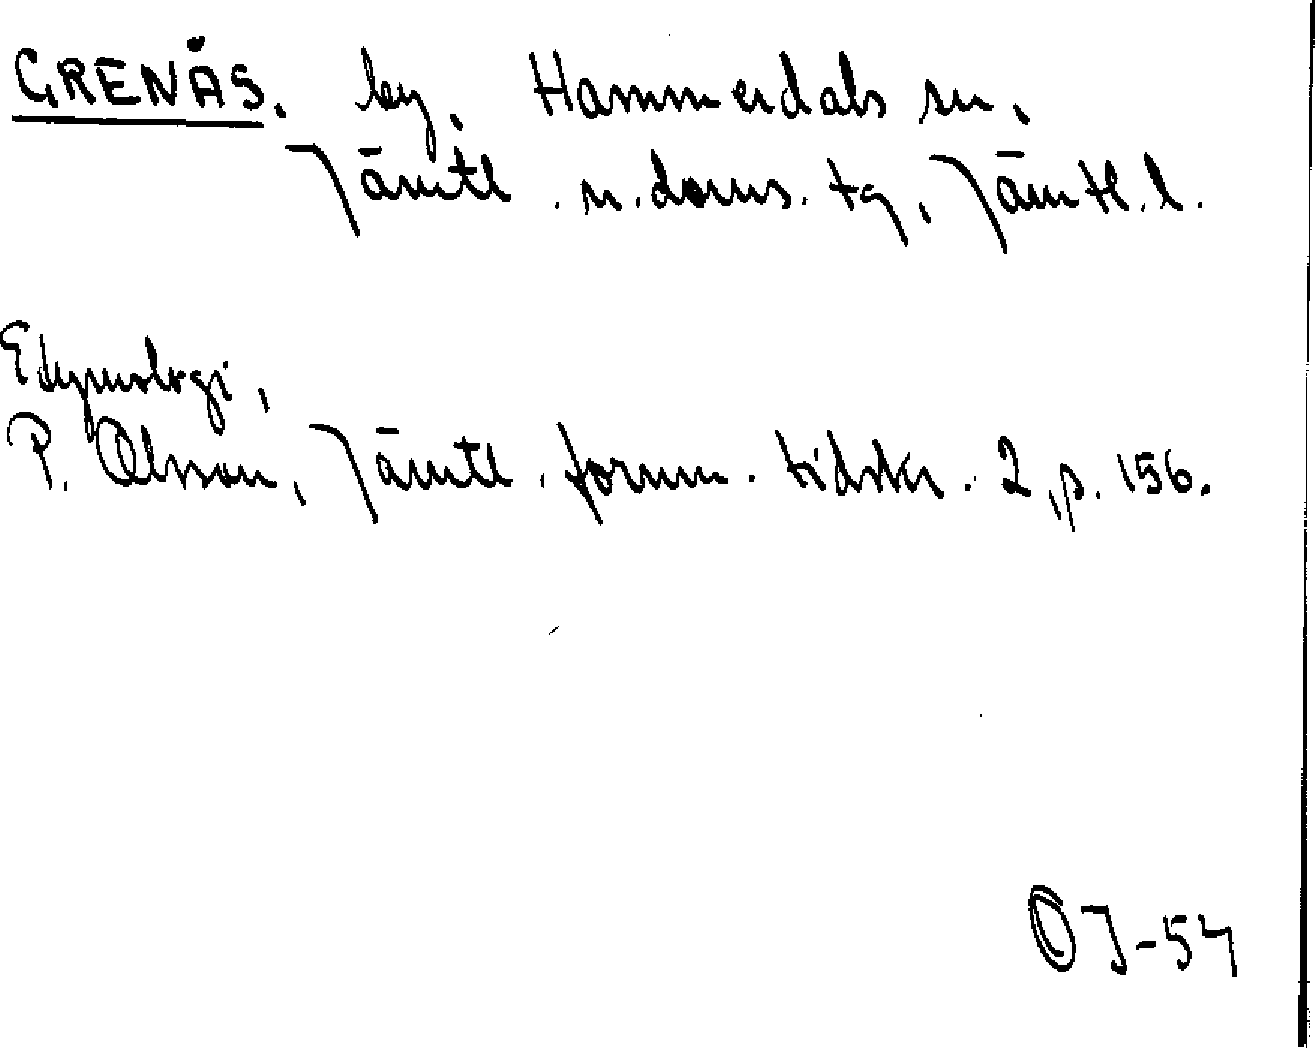 GRENÄS. by, Hammerdals sn,
Jämtl. n. doms. tg, Jämtl. l.
Etymologi,
P. Olsson, Jämtl. fornm. tidskr. 2, p. 156.
OJ-54